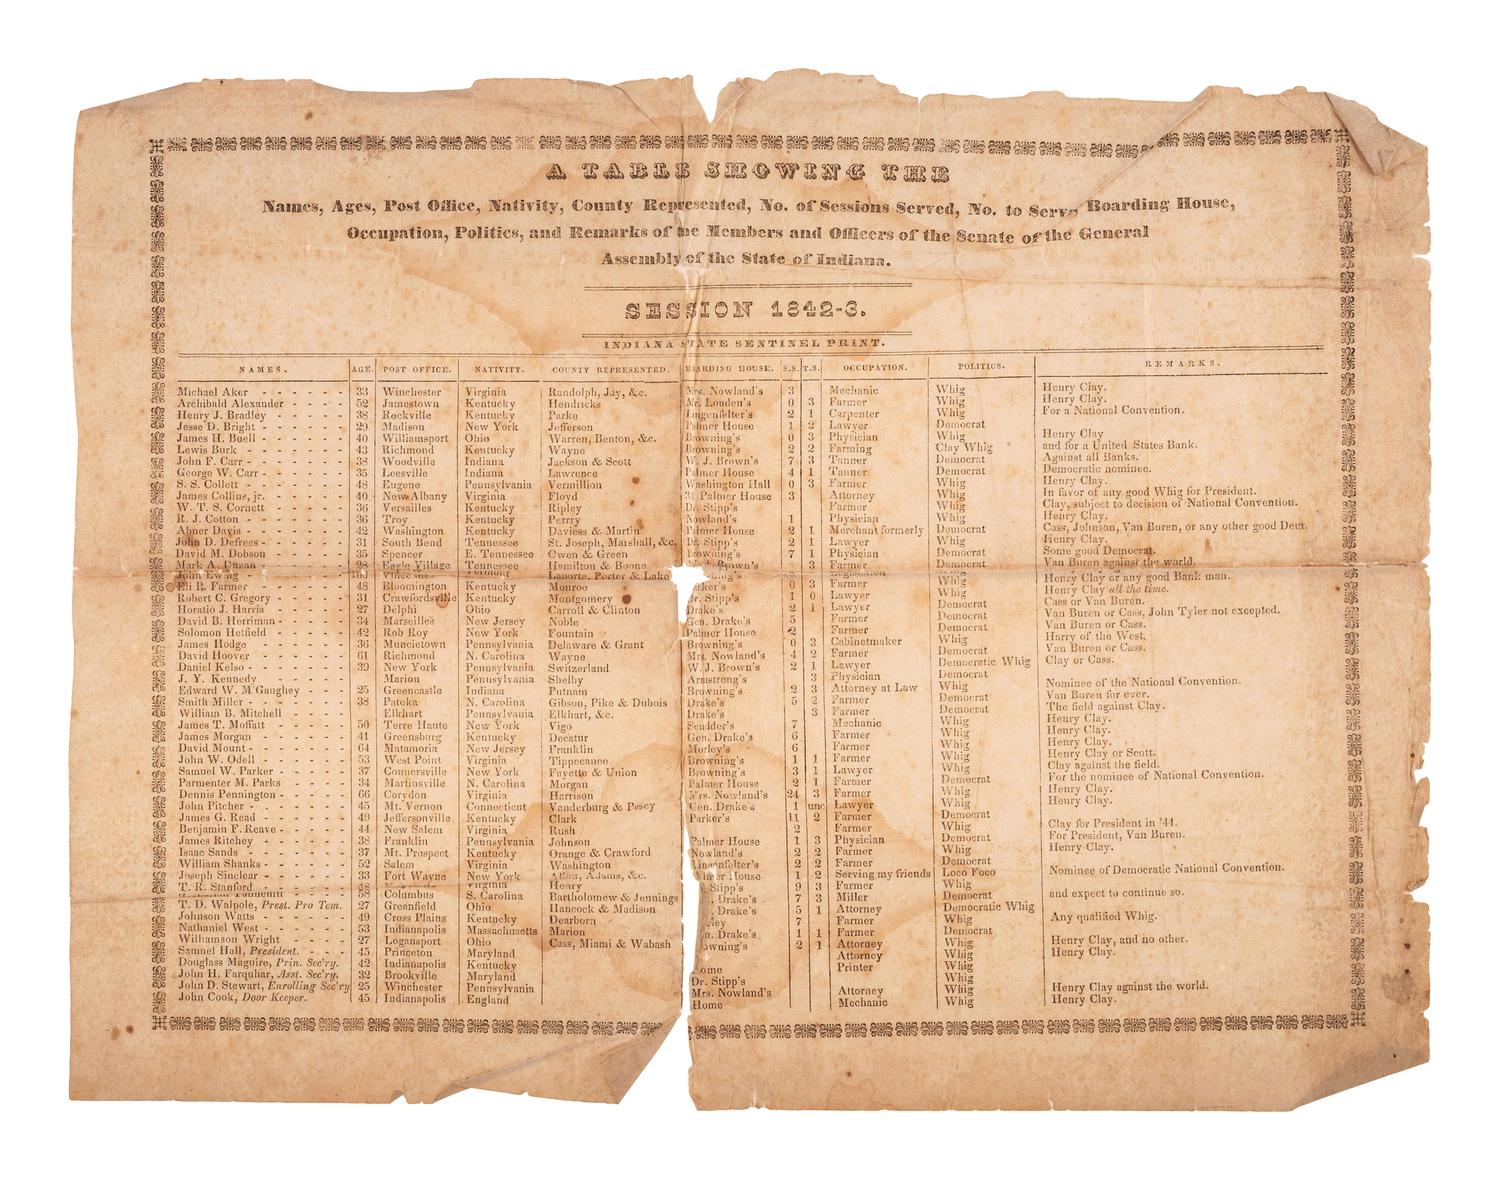 A TABLE SHOWING THE
Names, Ages, Post Office, Nativity, County Represented, No. of Sessions Served, No. to Serve Boarding House,
Occupation, Politics, and Remarks of the Members and Officers of the Senate of the General
Assembly of the State of Indiana.
SESSION 1842-3.
INDIANA STATE SENTINEL PRINT.
NAMES. AGE. POST OFFICE. NATIVITY. COUNTY REPRESENTED. BOARDING HOUSE. S.S. T.S. OCCUPATION. POLITICS. REMARKS.
Michael Aker - - - - - - 33 Winchester Virginia Randolph, Jay, &c. Mrs. Nowland's 3 Mechanic Whig Henry Clay.
Archibald Alexander - - - - 52 Jamestown Kentucky Hendricks Mr. Louden's 0 3 Farmer Whig Henry Clay.
Henry J. Bradley - - - - - 38 Rockville Kentucky Parke Lingenfelter's 2 1 Carpenter Whig For a National Convention.
Jesse D. Bright - - - - - - 29 Madison New York Jefferson Palmer House 1 2 Lawyer Democrat
James H. Buell - - - - - - 40 Williamsport Ohio Warren, Benton, &c. Browning's 0 3 Physician Whig Henry Clay
Lewis Burk - - - - - - 43 Richmond Kentucky Wayne Browning's 2 2 Farming Clay Whig and for a United States Bank.
John F. Carr - - - - - - 38 Woodville Indiana Jackson & Scott W. J. Brown's 7 3 Tanner Democrat Against all Banks.
George W. Carr - - - - - - 35 Leesville Indiana Lawrence Palmer House 4 1 Tanner Democrat Democratic nominee.
S. S. Collett - - - - - - 48 Eugene Pennsylvania Vermillion Washington Hall 0 3 Farmer Whig Henry Clay.
James Collins, jr. - - - - - 40 New Albany Virginia Floyd Palmer House 3 Attorney Whig In favor of any good Whig for President.
W. T. S. Cornett - - - - - 36 Versailles Kentucky Ripley Dr. Stipp's Farmer Whig Clay, subject to decision of National Convention.
R. J. Cotton - - - - - - 36 Troy Kentucky Perrry Nowland's 1 Physician Whig Henry Clay.
Abner Davis - - - - - - 42 Washington Kentucky Daviess & Martin Palmer House 2 1 Merchant formerly Democrat Cass, Johnson, Van Buren, or any other good Dem.
John D. Defrees - - - - - 31 South Bend Tennessee St. Joseph, Marshall, &c. Dr. Stipp's 2 1 Lawyer Whig Henry Clay.
David M. Dobson - - - - - 35 Spencer E. Tennessee Owen & Green Browning's 7 1 Physician Democrat Some good Democrat.
Mark A. Duzan - - - - - - 28 Eagle Village Tennessee Hamilton & Boone Brown's Democrat Van Buren against the world.
John Ewing - - - - - - Vermont Laporte, Porter & Lake Henry Clay or any good Bank man.
Eli P. Farmer - - - - - - 48 Bloomington Kentucky Monroe Parker's 0 3 Farmer
Robert C. Gregory - - - - - 31 Crawfordsville Kentucky Montgomery Dr. Stipp's 1 0 Lawyer Whig Henry Clay all the time.
Horatio J. Harris - - - - - 27 Delphi Ohio Carroll & Clinton Drake's 2 1 Lawyer Democrat Cass or Van Buren.
David B. Herriman - - - - - 34 Marseilles New Jersey Noble Gen. Drake's 5 Farmer Democrat Van Buren or Cass, John Tyler not excepted.
Solomon Hetfield - - - - - 42 Rob Roy New York Fountain Palmer House 2 Farmer Democrat Van Buren or Cass.
James Hodge - - - - - - 36 Muncietown Pennsylvania Delaware & Grant Browning's 0 3 Cabinetmaker Whig Harry of the West.
David Hoover - - - - - - 61 Richmond N. Carolina Wayne Mrs. Nowland's 4 2 Farmer Democrat Van Buren or Cass.
Daniel Kelso - - - - - - 39 New York Pennsylvania Switzerland W. J. Brown's 2 1 Lawyer Democratic Whig Clay or Cass.
J. Y. Kennedy - - - - - - Marion Pennsylvania Shelby Armstrong's 3 Physician Democrat
Edward W. M'Gaughey - - - 25 Greencastle Indiana Putnam Browning's 2 3 Attorney at Law Whig Nominee of the National Convention.
Smith Miller - - - - - - 38 Patoka N. Carolina Gibson, Pike & Dubois Drake's 5 2 Farmer Democrat Van Buren for ever.
William B. Mitchell - - - - Elkhart Pennsylvania Elkhart, &c. Drake's 3 Farmer Democrat The field against Clay.
James T. Moffatt - - - - - 50 Terre Haute New York Vigo Scudder's 7 Mechanic Whig Henry Clay.
James Morgan - - - - - - 41 Greensburg Kentucky Decatur Gen. Drake's 6 Farmer Whig Henry Clay.
David Mount - - - - - - 64 Matamoria New Jersey Franklin Morley's 6 Farmer Whig Henry Clay.
John W. Odell - - - - - - 53 West Point Virginia Tippecanoe Browning's 1 1 Farmer Whig Henry Clay or Scott.
Samuel W. Parker - - - - - 37 Connersville New York Fayette & Union Browning's 3 1 Lawyer Whig Clay against the field.
Parmenter M. Parks - - - - 34 Martinsville N. Carolina Morgan Palmer House 2 1 Farmer Democrat For the nominee of National Convention.
Dennis Pennington - - - - - 66 Corydon Virginia Harrison Mrs. Nowland's 24 3 Farmer Whig Henry Clay.
John Pitcher - - - - - - 45 Mt. Vernon Connecticut Vanderburg & Posey Gen. Drake's 1 unc Lawyer Whig Henry Clay.
James G. Read - - - - - - 49 Jeffersonville Kentucky Clark Parker's 11 2 Farmer Democrat
Benjamin F. Reave - - - - - 44 New Salem Virginia Rush 2 Farmer Whig Clay for President in '44.
James Ritchey - - - - - - 38 Franklin Pennsylvania Johnson Palmer House 1 3 Physician Democrat For President, Van Buren.
Isaac Sands - - - - - - 37 Mt. Prospect Kentucky Orange & Crawford Nowland's 2 2 Farmer Whig Henry Clay.
William Shanks - - - - - - 52 Salem Virginia Washington Lingenfelter's 2 2 Farmer Democrat
Joseph Sinclear - - - - - - 33 Fort Wayne New York Allen, Adams, &c. Palmer House 1 2 Serving my friends Loco Foco Nominee of Democratic National Convention.
T. R. Stanford - - - - - 48 Virginia Henry Stipp's 9 3 Farmer Whig
58 Columbus S. Carolina Bartholomew & Jennings Drake's 7 3 Miller Democrat and expect to continue so.
T. D. Walpole, Prest. Pro Tem. 27 Greenfield Ohio Hancock & Madison Drake's 5 1 Attorney Democratic Whig
Johnson Watts - - - - - - 49 Cross Plains Kentucky Dearborn 7 Farmer Whig Any qualified Whig.
Nathaniel West - - - - - - 53 Indianapolis Massachusetts Marion Drake's 1 1 Farmer Democrat
Williamson Wright - - - - - 27 Logansport Ohio Cass, Miami & Wabash Browning's 2 1 Attorney Whig Henry Clay, and no other.
Samuel Hall, President. - - - - 45 Princeton Maryland Attorney Whig Henry Clay.
Douglass Maguire, Prin. Sec'ry. 42 Indianapolis Kentucky Home Printer Whig
John H. Farquhar, Asst. Sec'ry. 32 Brookville Maryland Dr. Stipp's Whig
John D. Stewart, Enrolling Sec'ry 25 Winchester Pennsylvania Mrs. Nowland's Attorney Whig Henry Clay against the world.
John Cook, Door Keeper. 45 Indianapolis England Home Mechanic Whig Henry Clay.